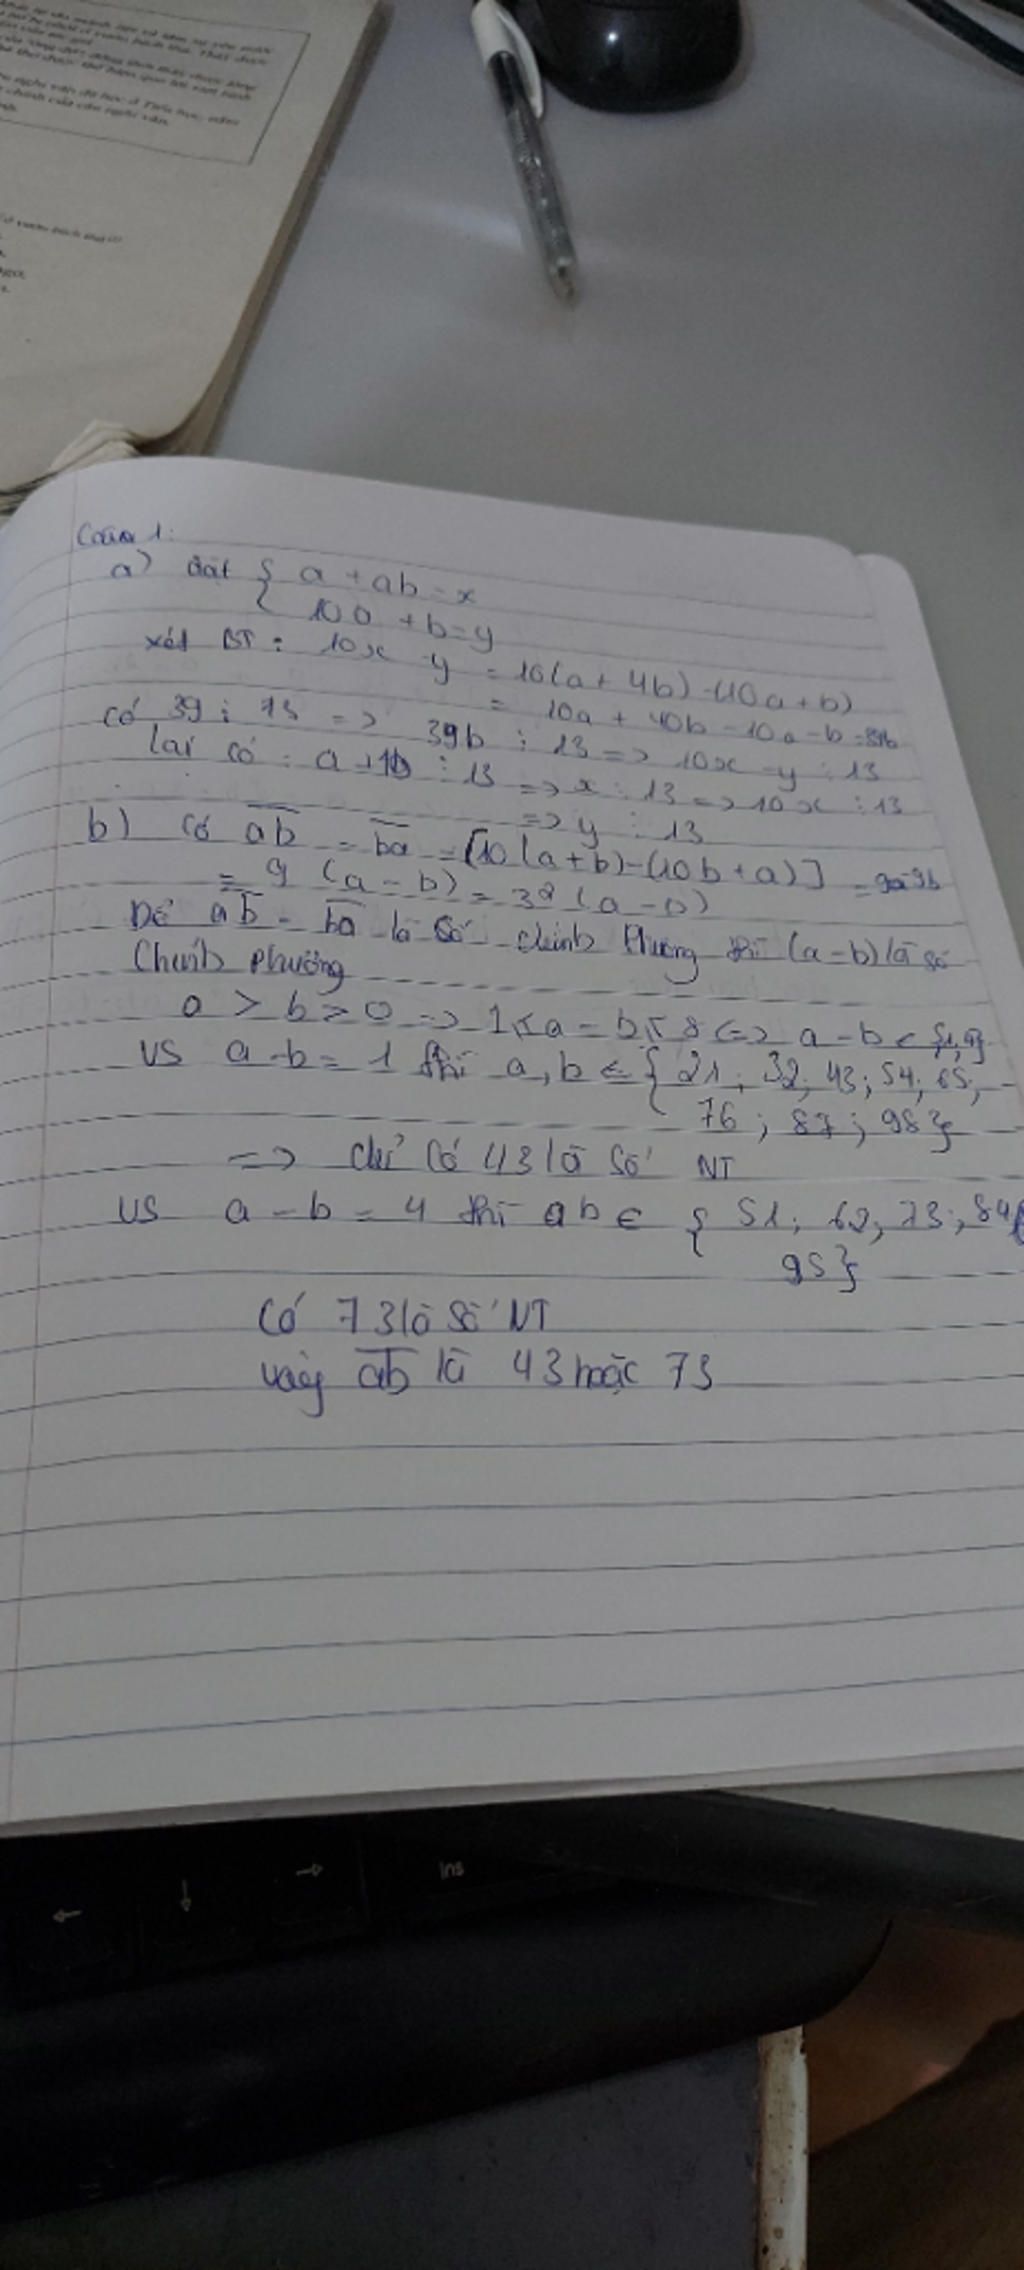 Câu 1:
a) đặt { a + ab = x
10a + b = y
xét BT: 10x - y = 10(a + 4b) - (10a + b)
= 10a + 40b - 10a - b = 39b
Có 39 ⋮ 13 => 39b ⋮ 13 => 10x - y ⋮ 13
lại có: a + 4b ⋮ 13 => x ⋮ 13 => 10x ⋮ 13
=> y ⋮ 13
b) Có ab - ba = [10(a+b) - (10b + a)] = 9a-9b
= 9 (a - b) = 3² (a - b)
Để ab - ba là số chính phương thì (a-b) là số
Chính phương
a > b > 0 => 1 ≤ a - b ≤ 8 <=> a - b ∈ {1,4}
VS a - b = 1 thì a, b ∈ { 21; 32; 43; 54; 65;
76; 87; 98}
=> chỉ có 43 là số NT
VS a - b = 4 thì ab ∈ { 51; 62; 73; 84;
95}
Có 73 là số NT
vậy ab là 43 hoặc 73
← ↓ → Ins